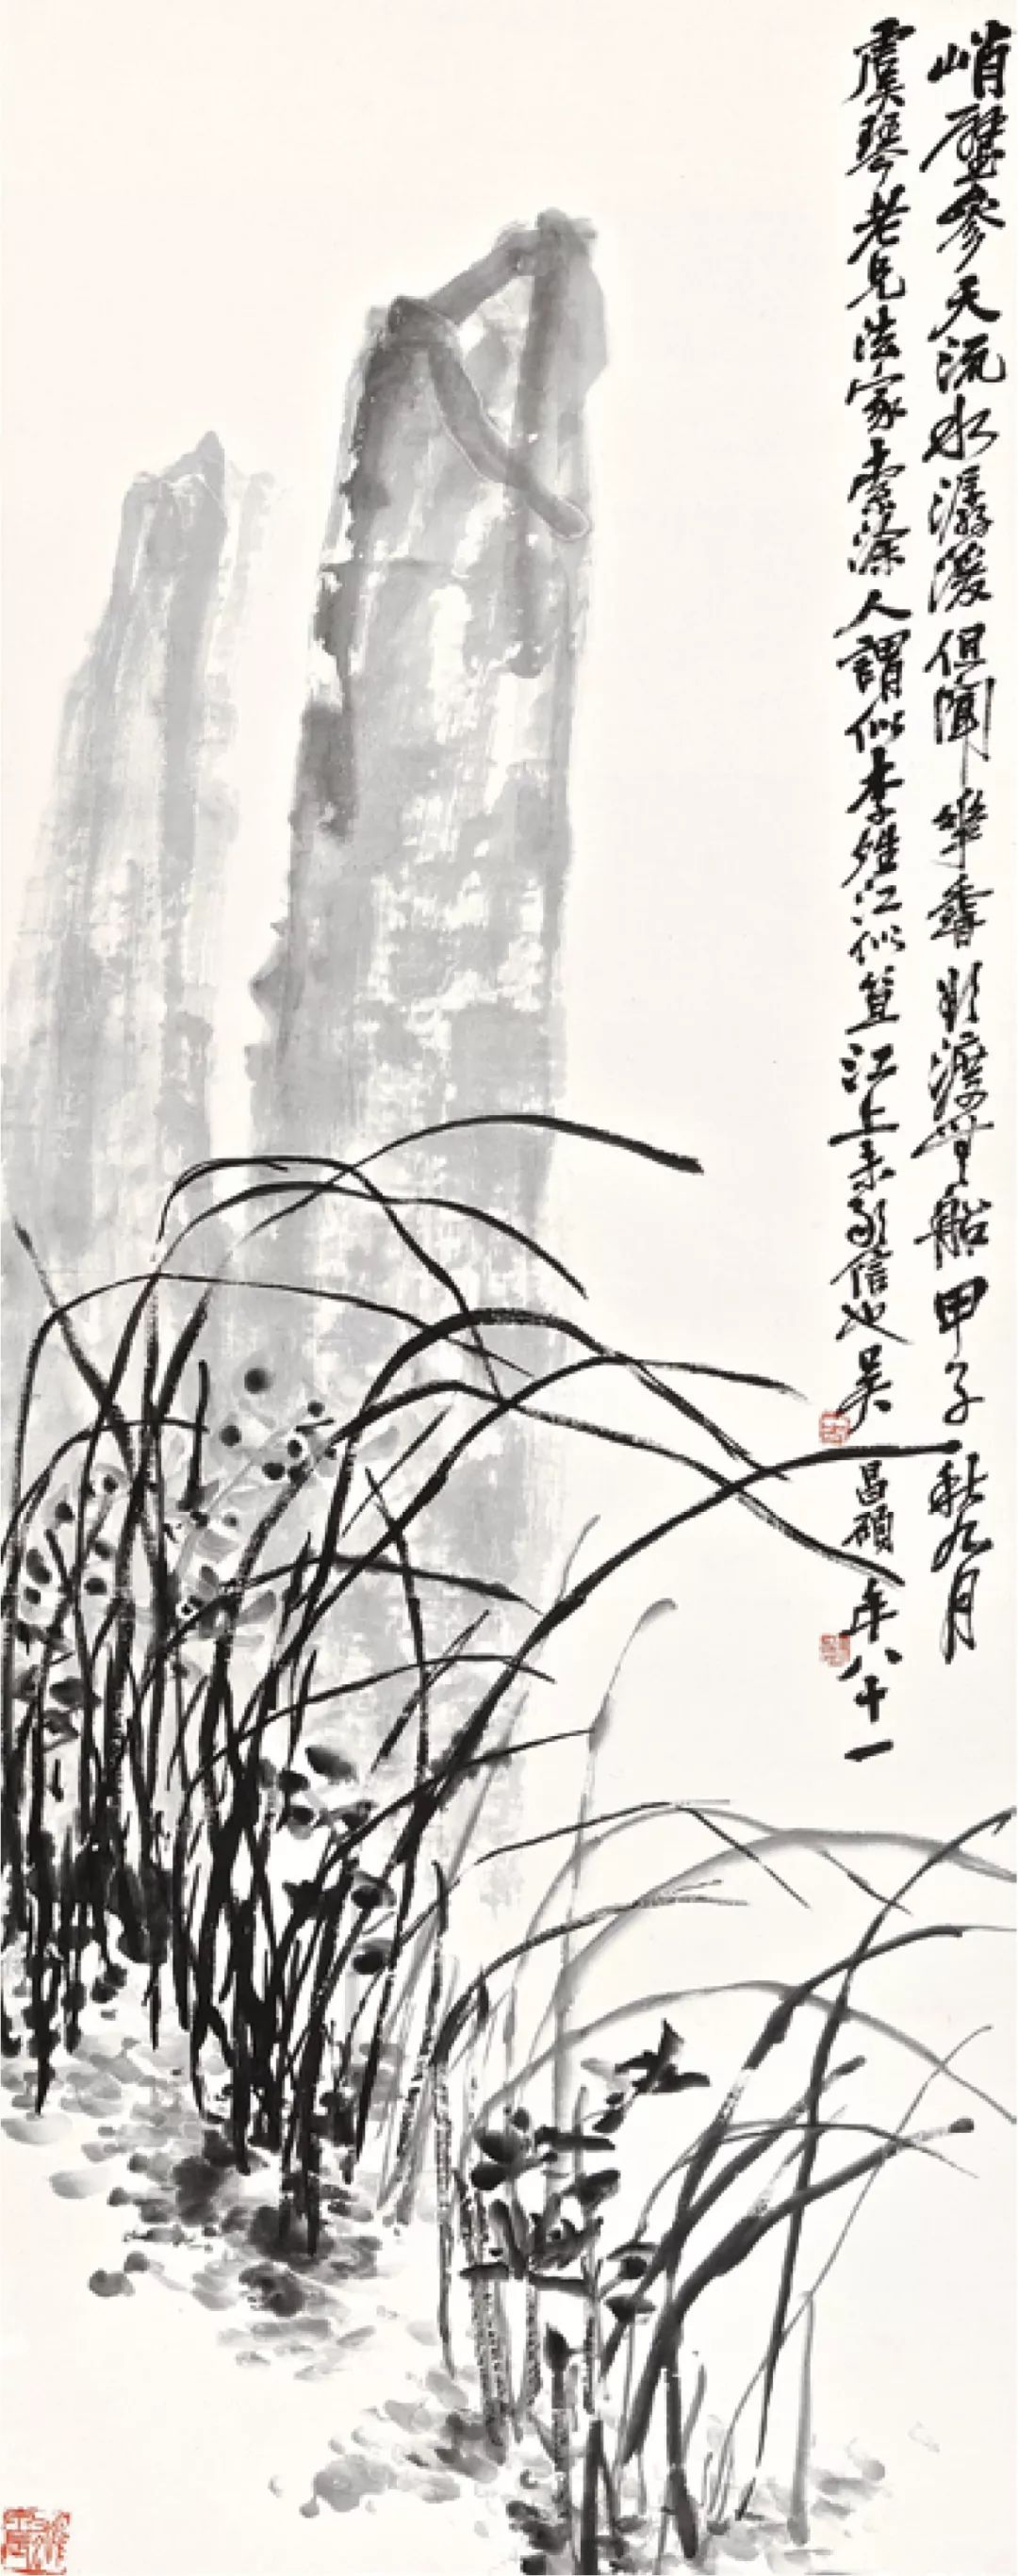 峭壁參天流水潺湲但聞華香欲渡無船甲子秋九月
虞琴老兄法家索涂人謂似李江似笪江上未敢信也吳昌碩年八十一